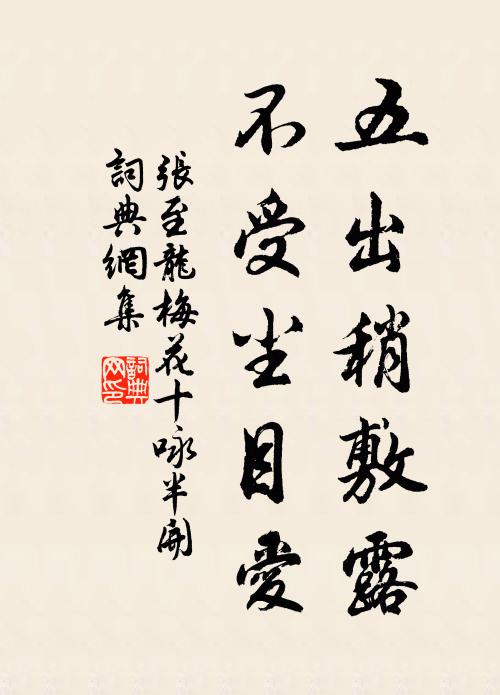 五出稍敷露
不受尘目愛
張至龍梅花十咏半開
詞典網集
詞典网印